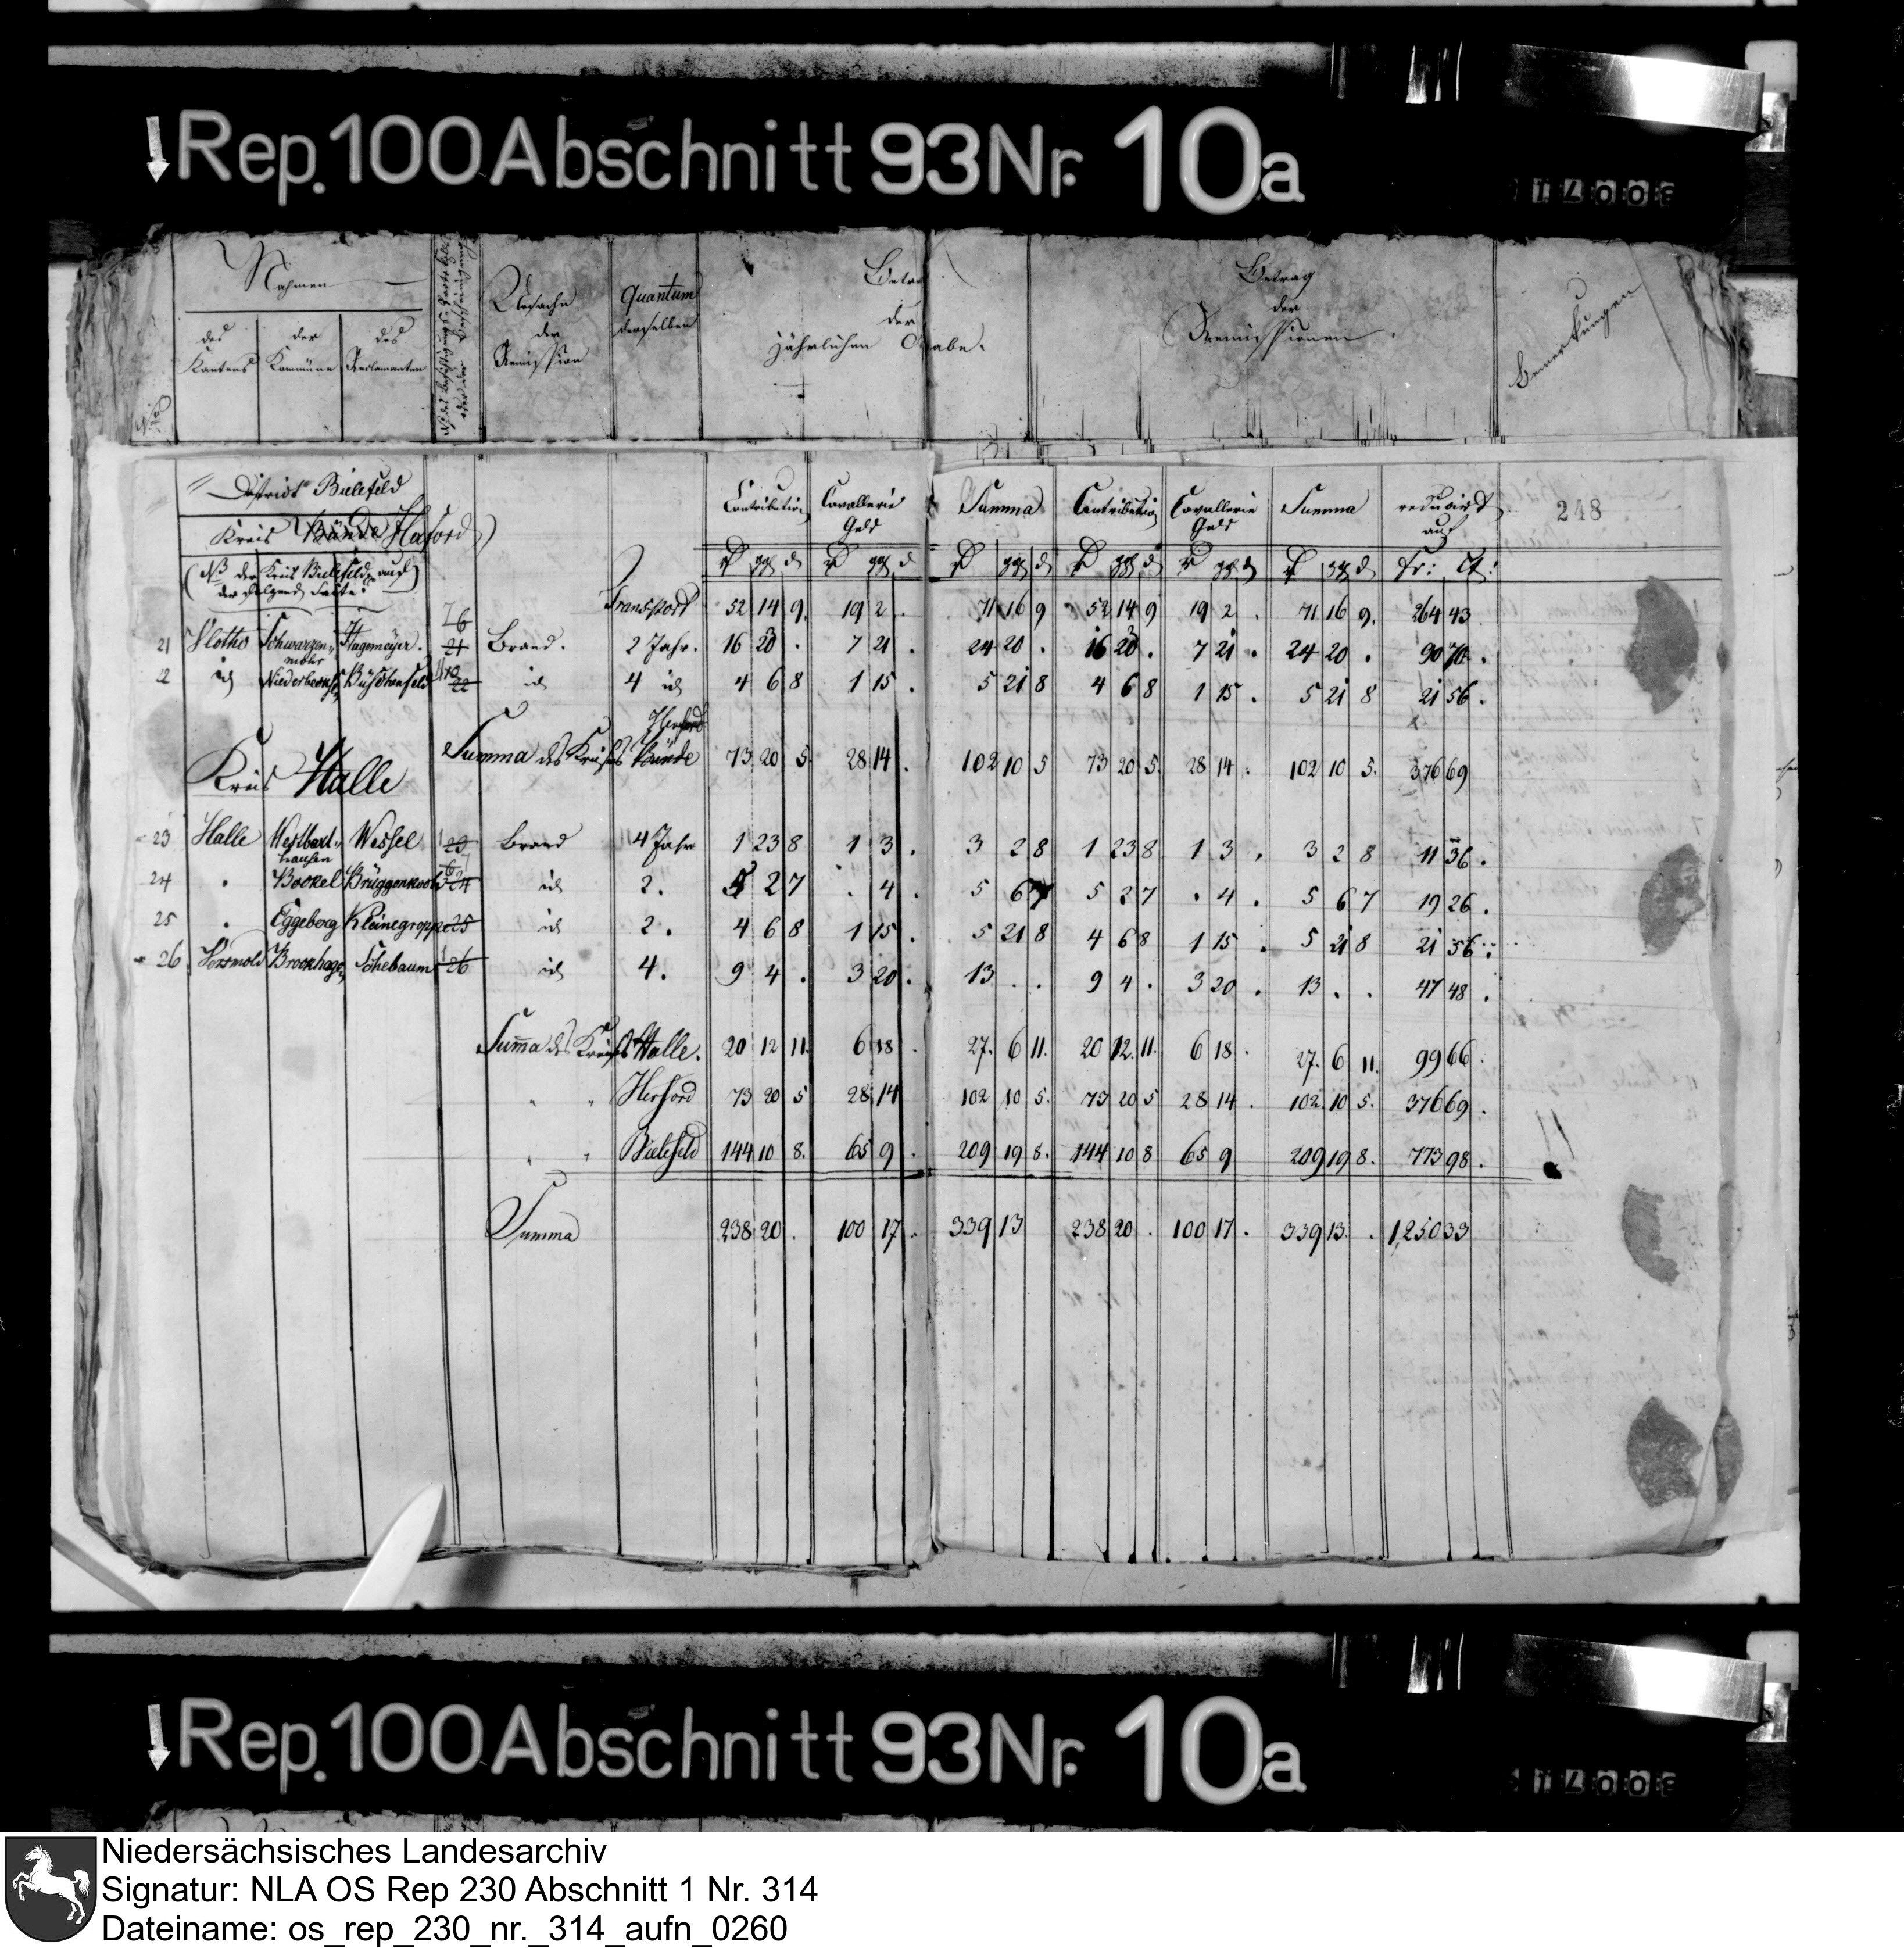 Rep. 100 Abschnitt 93 Nr. 10a
Nahmen
des Kantons
der Kommüne
des Reclamanten
Ursache der Remission
Quantum derselben
Betrag der jährlichen Abgabe.
Betrag der Remissionen.
Bemerkungen
District Bielefeld
Kreis Bünde Herford)
Contribution | Cavallerie Geld | Summa | Contribution | Cavallerie Geld | Summa | reducirt auf | 248
ggl d | ggl d | ggl d | ggl d | ggl d | ggl d | Fr: Ct:
Transport 52 14 9. | 19 2 . | 71 16 9 | 52 14 9 | 19 2 . | 71 16 9. | 264 43
21 Vlotho Schwarzen- Hagemeÿer. 21 Brand. 2 Jahr. 16 20 . | 7 21 . | 24 20 . | 16 20 . | 7 21 . | 24 20 . | 90 70 .
mohr
22 id Niederbecks. 22 id 4 id 4 6 8 | 1 15 . | 5 21 8 | 4 6 8 | 1 15 . | 5 21 8 | 21 56 .
Herford
Summa des Kreises Bünde 73 20 5. | 28 14 . | 102 10 5 | 73 20 5. | 28 14 . | 102 10 5. | 376 69
Kreis Halle
23 Halle Westbart- Wessel 23 Brand 4 Jahr 1 23 8 | 1 3 . | 3 2 8 | 1 23 8 | 1 3 . | 3 2 8 | 11 36 .
hausen
24 . Bockel 24 id 2. 5 2 7 | . 4 . | 5 6 7 | 5 2 7 | . 4 . | 5 6 7 | 19 26 .
25 . Eggeberg Kleinegroppe 25 id 2. 4 6 8 | 1 15 . | 5 21 8 | 4 6 8 | 1 15 . | 5 21 8 | 21 56 .
26 Versmold Brockhage, 26 id 4. 9 4 . | 3 20 . | 13 . . | 9 4 . | 3 20 . | 13 . . | 47 48 .
Summa des Kreises Halle. 20 12 11. | 6 18 . | 27. 6 11. | 20 12. 11. | 6 18 . | 27. 6 11. | 99 66 .
" " Herford 73 20 5 | 28 14 | 102 10 5. | 73 20 5 | 28 14 . | 102. 10 5. | 376 69 .
" " Bielefeld 144 10 8. | 65 9 . | 209 19 8. | 144 10 8 | 65 9 | 209 19 8. | 773 98 .
Summa 238 20 . | 100 17 . | 339 13 | 238 20 . | 100 17 . | 339 13. . | 1,250 33
Rep. 100 Abschnitt 93 Nr. 10a
Niedersächsisches Landesarchiv
Signatur: NLA OS Rep 230 Abschnitt 1 Nr. 314
Dateiname: os_rep_230_nr._314_aufn_0260